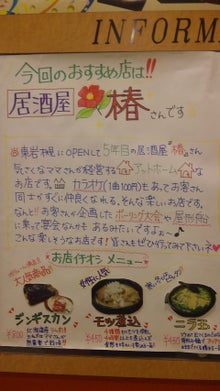 INFORM
今回のおすすめ店は!!
居酒屋 椿さんです
東岩槻にOPENして5年目の居酒屋“椿”さん
気さくなママさんが経営するアットホームな
お店です。カラオケ(1曲100円)もあってお客さん
同士がすぐに仲良くなれる、そんな楽しいお店です。
なんと!!お客さんが企画したボーリング大会や屋形船
に乗って宴会なんかもあるみたいですよぉ〜♪
こんな楽しそうなお店です!皆さんもぜひ行ってみて下さいネ
お店イチオシメニュー
大人気商品!
ジンギスカン
モツ煮込
ニラ玉
¥450